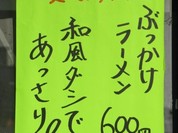 ぶっかけ
ラーメン
600円
和風ダシで
あっさり!!